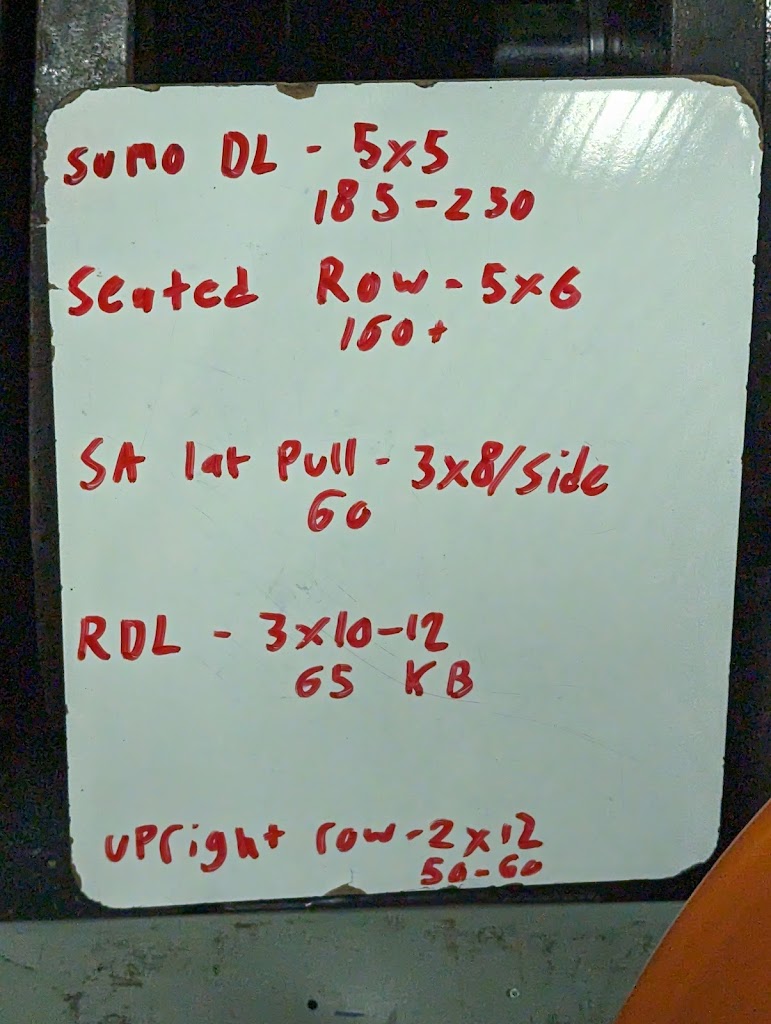 Sumo DL - 5x5
185-230
Seated Row - 5x6
160+
SA lat Pull - 3x8/side
60
RDL - 3x10-12
65 KB
upright row-2x12
50-60